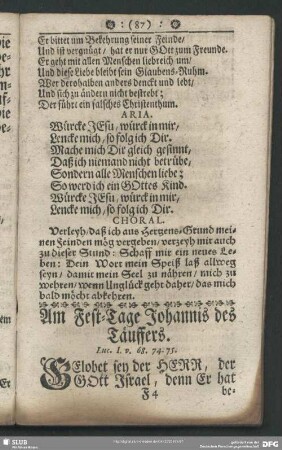 : (87) :
Er bittet um Bekehrung seiner Feinde/
Und ist vergnügt/ hat er nur GOtt zum Freunde.
Er geht mit allen Menschen liebreich um/
Und diese Liebe bleibt sein Glaubens-Ruhm.
Wer derohalben anders denckt und lebt/
Und sich zu ändern nicht bestrebt;
Der führt ein falsches Christenthum.
ARIA.
Würcke JEsu/ würck in mir/
Lencke mich/ so folg ich Dir.
Mache mich Dir gleich gesinnt,
Daß ich niemand nicht betrübe/
Sondern alle Menschen liebe;
So werd ich ein GOttes Kind.
Würcke JEsu/ würck in mir/
Lencke mich/ so folg ich Dir.
CHORAL.
Verleyh/ daß ich aus Hertzens-Grund mei-
nen Feinden mög vergeben/ verzeyh mir auch
zu dieser Stund: Schaff mir ein neues Le-
ben: Dein Wort mein Speiß laß allweg
seyn/ damit mein Seel zu nähren/ mich zu
wehren/ wenn Unglück geht daher/ das mich
bald möcht abkehren.
Am Fest-Tage Johannis des
Täuffers.
Luc. I. v. 68. 74. 75.
GElobet sey der HERR, der
GOtt Israel, denn Er hat
F 4 be-
SLUB
DFG